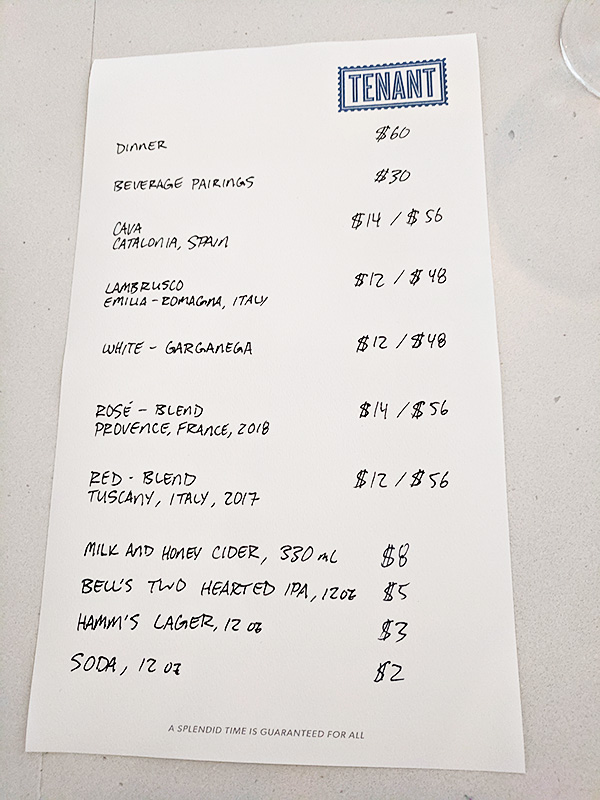 TENANT
DINNER $60
BEVERAGE PAIRINGS $30
CAVA $14 / $56
CATALONIA, SPAIN
LAMBRUSCO $12 / $48
EMILIA-ROMAGNA, ITALY
WHITE - GARGANEGA $12 / $48
ROSÉ - BLEND $14 / $56
PROVENCE, FRANCE, 2018
RED - BLEND $12 / $56
TUSCANY, ITALY, 2017
MILK AND HONEY CIDER, 330 mL $8
BELL'S TWO HEARTED IPA, 12oz $5
HAMM'S LAGER, 12 oz $3
SODA, 12 oz $2
A SPLENDID TIME IS GUARANTEED FOR ALL